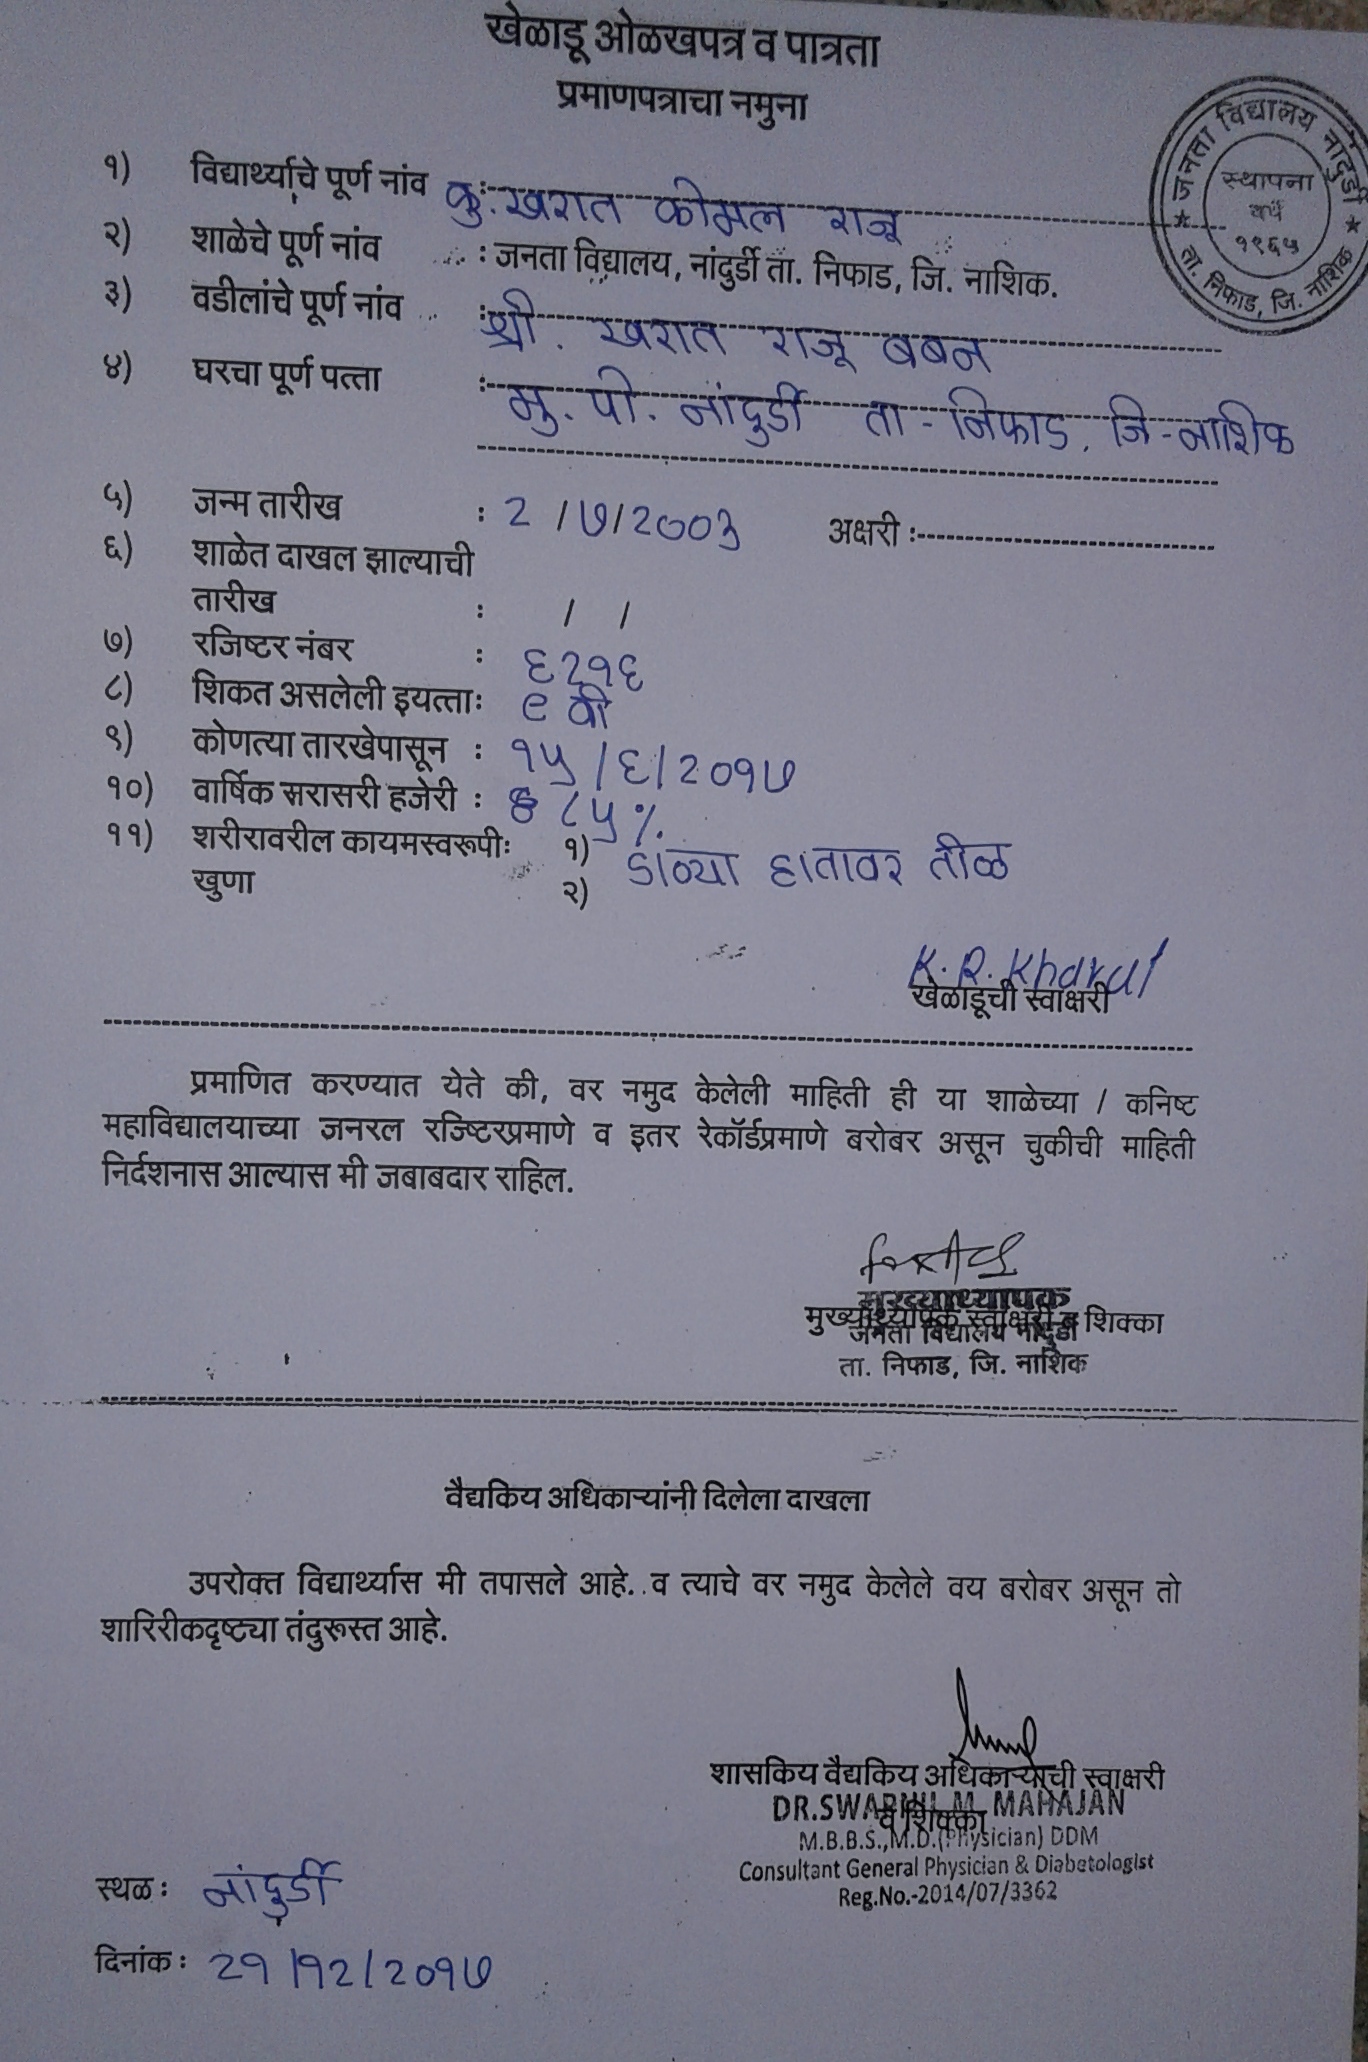 खेळाडू ओळखपत्र व पात्रता
प्रमाणपत्राचा नमुना
जनता विद्यालय नांदुर्डी
स्थापना
वर्ष
१९६५
★ ता. निफाड, जि. नाशिक ★
१) विद्यार्थ्याचे पूर्ण नांव : कु. खरात कोमल राजू
२) शाळेचे पूर्ण नांव : जनता विद्यालय, नांदुर्डी ता. निफाड, जि. नाशिक.
३) वडीलांचे पूर्ण नांव : श्री. खरात राजू बबन
४) घरचा पूर्ण पत्ता : मु. पो. नांदुर्डी ता - निफाड, जि - नाशिक
५) जन्म तारीख : २ /७/२००३ अक्षरी :
६) शाळेत दाखल झाल्याची
तारीख : / /
७) रजिष्टर नंबर : ६२१६
८) शिकत असलेली इयत्ताः ९ वी
९) कोणत्या तारखेपासून : १५ /६/२०१७
१०) वार्षिक सरासरी हजेरी : ८५ %
११) शरीरावरील कायमस्वरूपीः १) डाव्या हातावर तीळ
खुणा २)
K. R. Kharat
खेळाडूची स्वाक्षरी
प्रमाणित करण्यात येते की, वर नमुद केलेली माहिती ही या शाळेच्या / कनिष्ट
महाविद्यालयाच्या जनरल रज्टिरप्रमाणे व इतर रेकॉर्डप्रमाणे बरोबर असून चुकीची माहिती
निर्दशनास आल्यास मी जबाबदार राहिल.
मुख्याध्यापक
मुख्याध्यापक स्वाक्षरी व शिक्का
जनता विद्यालय नांदुर्डी
ता. निफाड, जि. नाशिक
वैद्यकिय अधिकाऱ्यांनी दिलेला दाखला
उपरोक्त विद्यार्थ्यास मी तपासले आहे. व त्याचे वर नमुद केलेले वय बरोबर असून तो
शारिरीकदृष्ट्या तंदुरूस्त आहे.
शासकिय वैद्यकिय अधिकाऱ्याची स्वाक्षरी
व शिक्का
DR. M. MAHAJAN
M.B.B.S.,M.D.(Physician) DDM
Consultant General Physician & Diabetologist
Reg.No.-2014/07/3362
स्थळ : नांदुर्डी
दिनांक : २१ /१२/२०१७